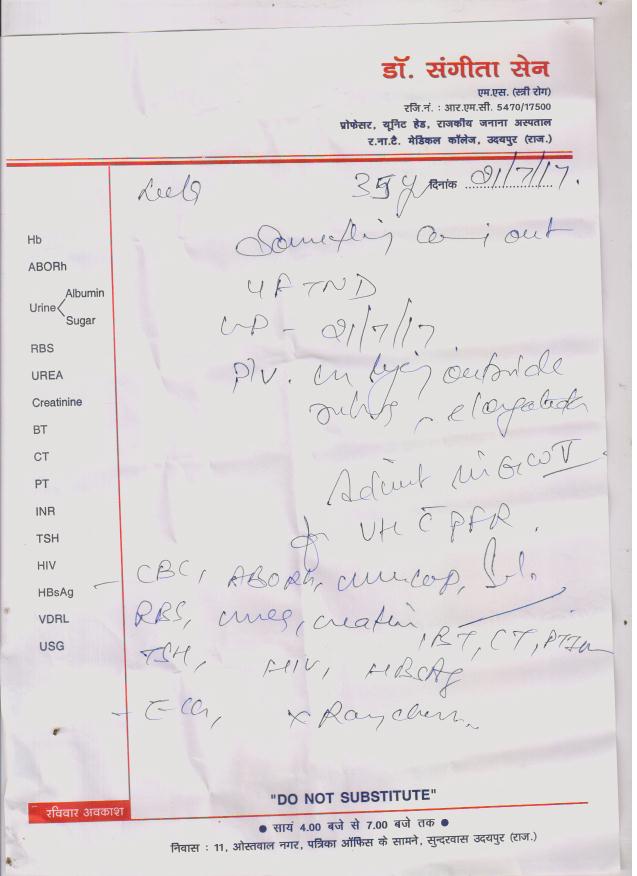 डॉ. संगीता सेन
एम.एस. (स्त्री रोग)
रजि.नं. : आर.एम.सी. 5470/17500
प्रोफेसर, यूनिट हेड, राजकीय जनाना अस्पताल
र.ना.टै. मेडिकल कॉलेज, उदयपुर (राज.)
35y दिनांक 21/7/17.
Hb
ABORh
Urine Albumin
Sugar
RBS
UREA
Creatinine
BT
CT
PT
INR
TSH
HIV
HBsAg
VDRL
USG
out
4FTND
- 21/7/17
P/V. outside
elongated
Admit in
VH C PFR.
CBC, ABORh,
RBS, urea, creatin
BT, CT,
TSH, HIV, HBsAg
ECG, X Ray chest
रविवार अवकाश
"DO NOT SUBSTITUTE"
● सायं 4.00 बजे से 7.00 बजे तक ●
निवास : 11, ओस्तवाल नगर, पत्रिका ऑफिस के सामने, सुन्दरवास उदयपुर (राज.)